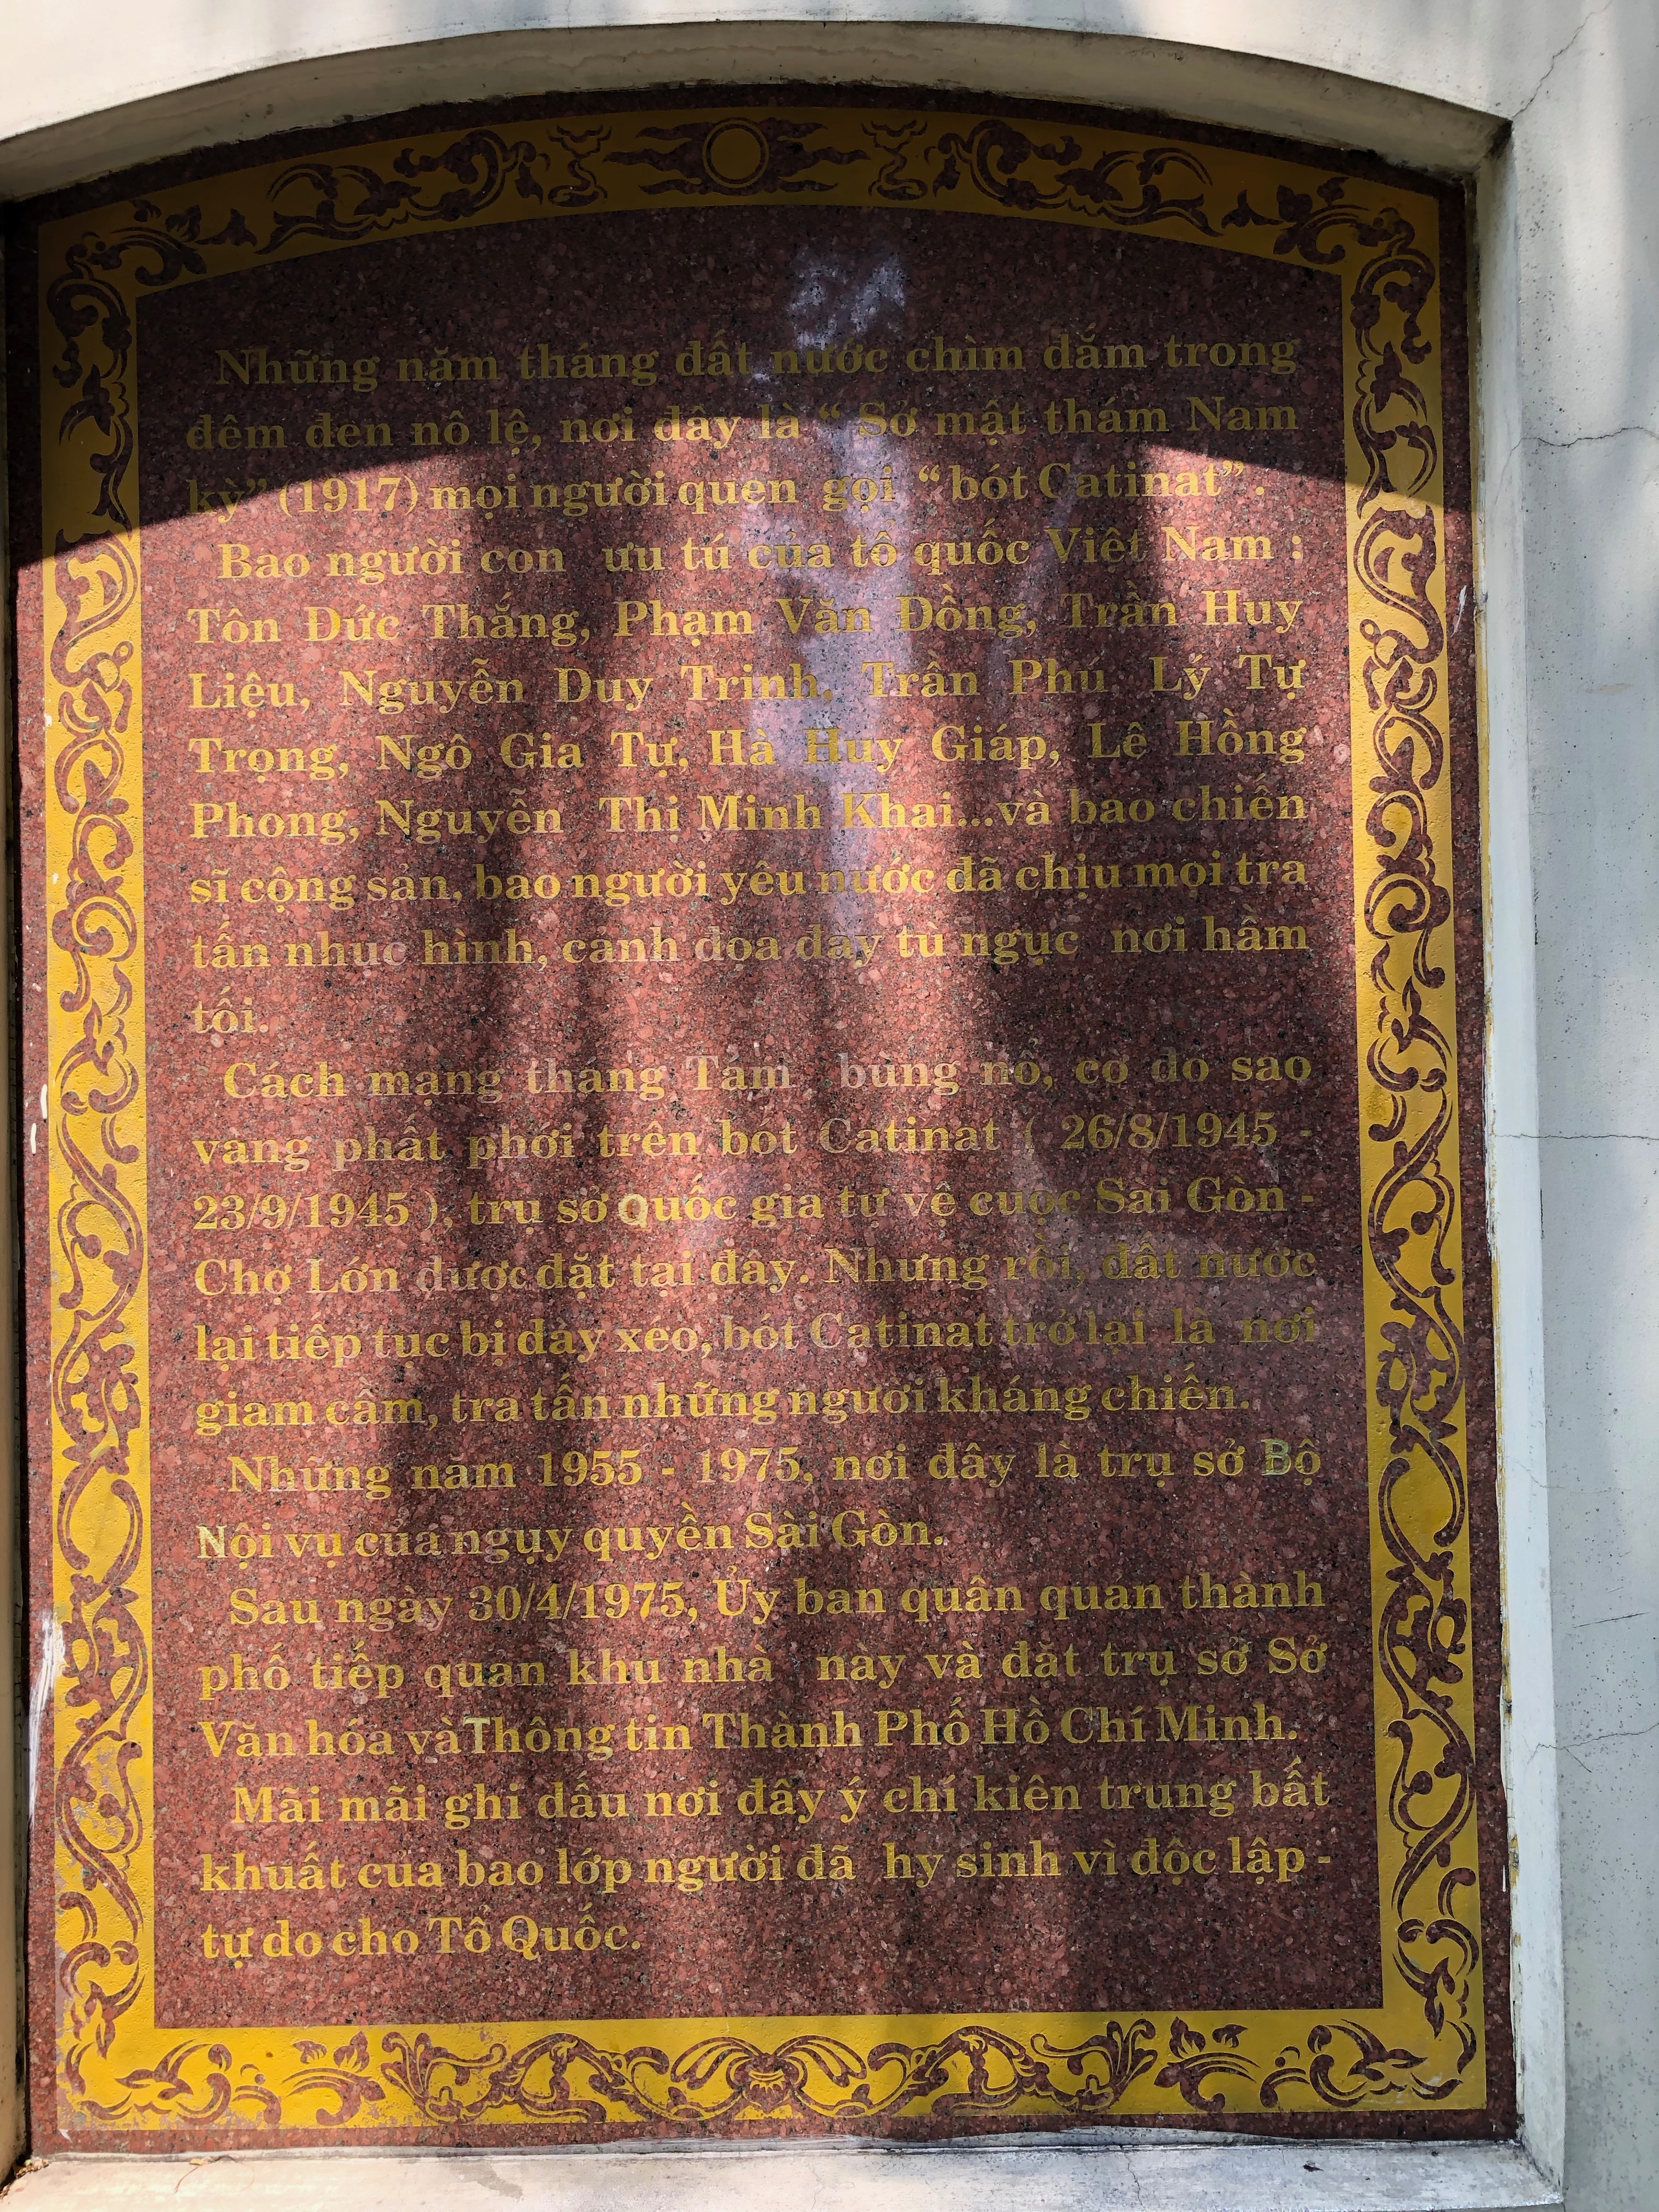 Những năm tháng đất nước chìm đắm trong
đêm đen nô lệ, nơi đây là “ Sở mật thám Nam
kỳ” (1917) mọi người quen gọi “ bót Catinat” .
Bao người con ưu tú của tổ quốc Việt Nam :
Tôn Đức Thắng, Phạm Văn Đồng, Trần Huy
Liệu, Nguyễn Duy Trinh, Trần Phú, Lý Tự
Trọng, Ngô Gia Tự, Hà Huy Giáp, Lê Hồng
Phong, Nguyễn Thị Minh Khai...và bao chiến
sĩ cộng sản, bao người yêu nước đã chịu mọi tra
tấn nhục hình, cảnh đọa đày tù ngục nơi hầm
tối.
Cách mạng tháng Tám bùng nổ, cờ đỏ sao
vàng phất phới trên bót Catinat ( 26/8/1945 -
23/9/1945 ), trụ sở Quốc gia tự vệ cuộc Sài Gòn -
Chợ Lớn được đặt tại đây. Nhưng rồi, đất nước
lại tiếp tục bị dày xéo, bót Catinat trở lại là nơi
giam cầm, tra tấn những người kháng chiến.
Những năm 1955 - 1975, nơi đây là trụ sở Bộ
Nội vụ của ngụy quyền Sài Gòn.
Sau ngày 30/4/1975, Ủy ban quân quản thành
phố tiếp quản khu nhà này và đặt trụ sở Sở
Văn hóa và Thông tin Thành Phố Hồ Chí Minh.
Mãi mãi ghi dấu nơi đây ý chí kiên trung bất
khuất của bao lớp người đã hy sinh vì độc lập -
tự do cho Tổ Quốc.